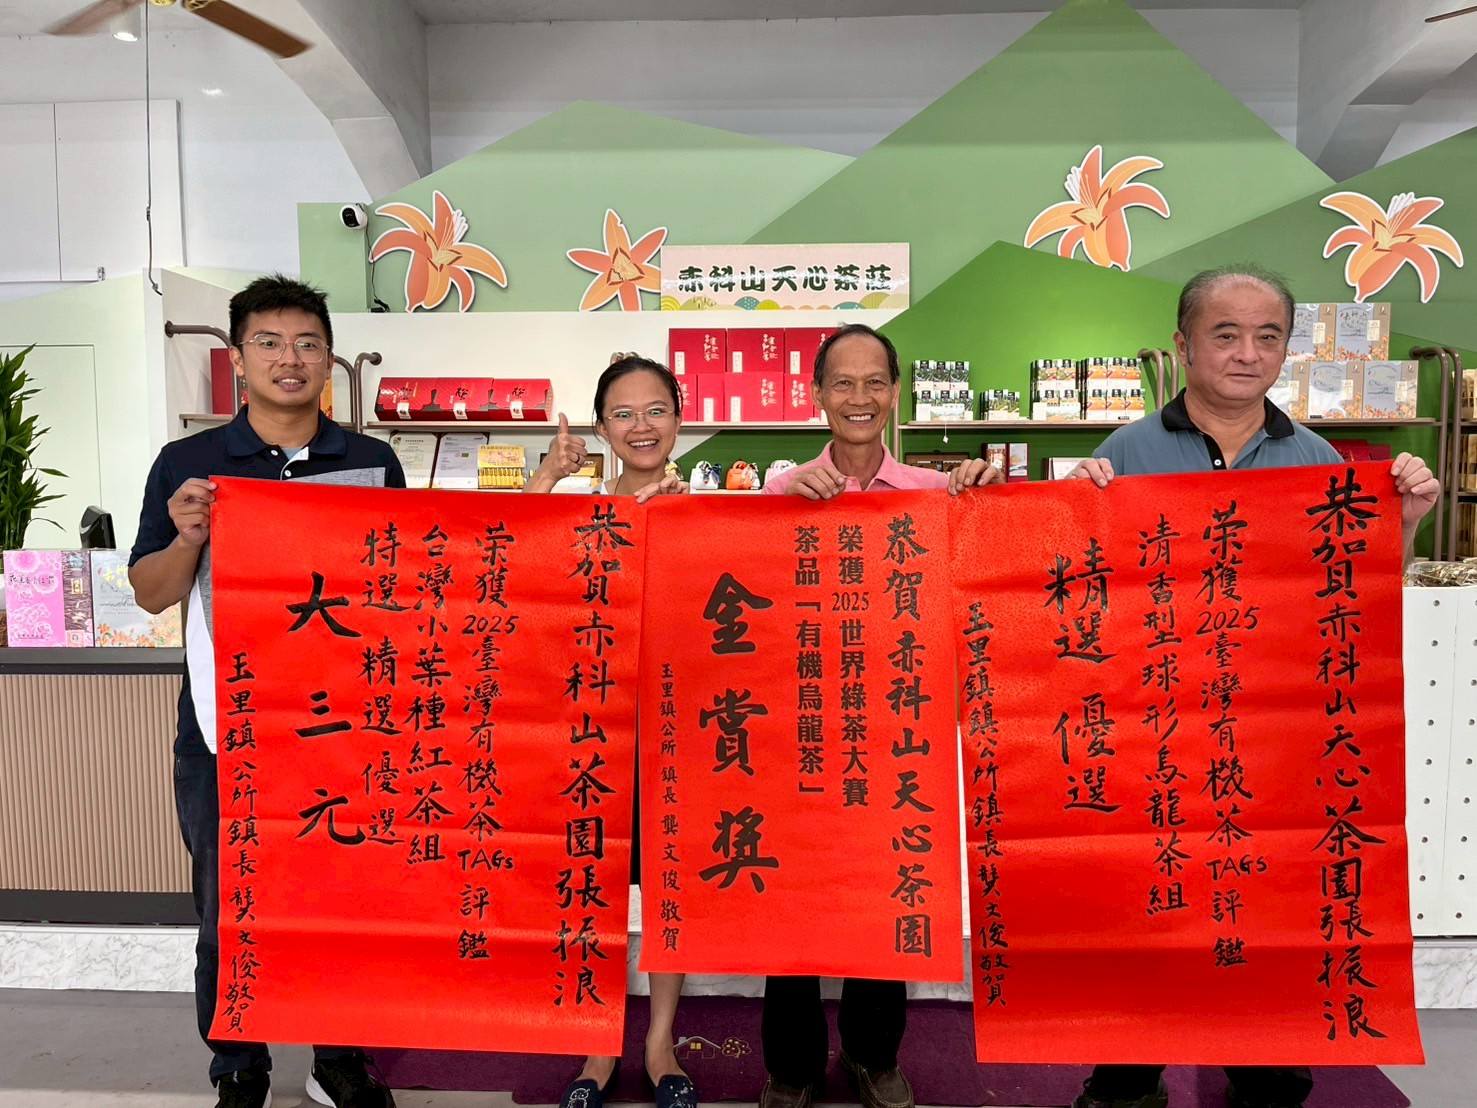 赤科山天心茶莊
恭賀赤科山茶園張振浪
榮獲2025臺灣有機茶TAGs評鑑
台灣小葉種紅茶組
特選 精選 優選
大三元
玉里鎮公所鎮長龔文俊敬賀
恭賀赤科山天心茶園
榮獲2025世界綠茶大賽
茶品「有機烏龍茶」
金賞獎
玉里鎮公所 鎮長 龔文俊 敬賀
恭賀赤科山天心茶園張振浪
荣獲2025臺灣有機茶TAGs評鑑
清香型球形烏龍茶組
精選 優選
玉里鎮鎮公所鎮長龔文俊敬賀